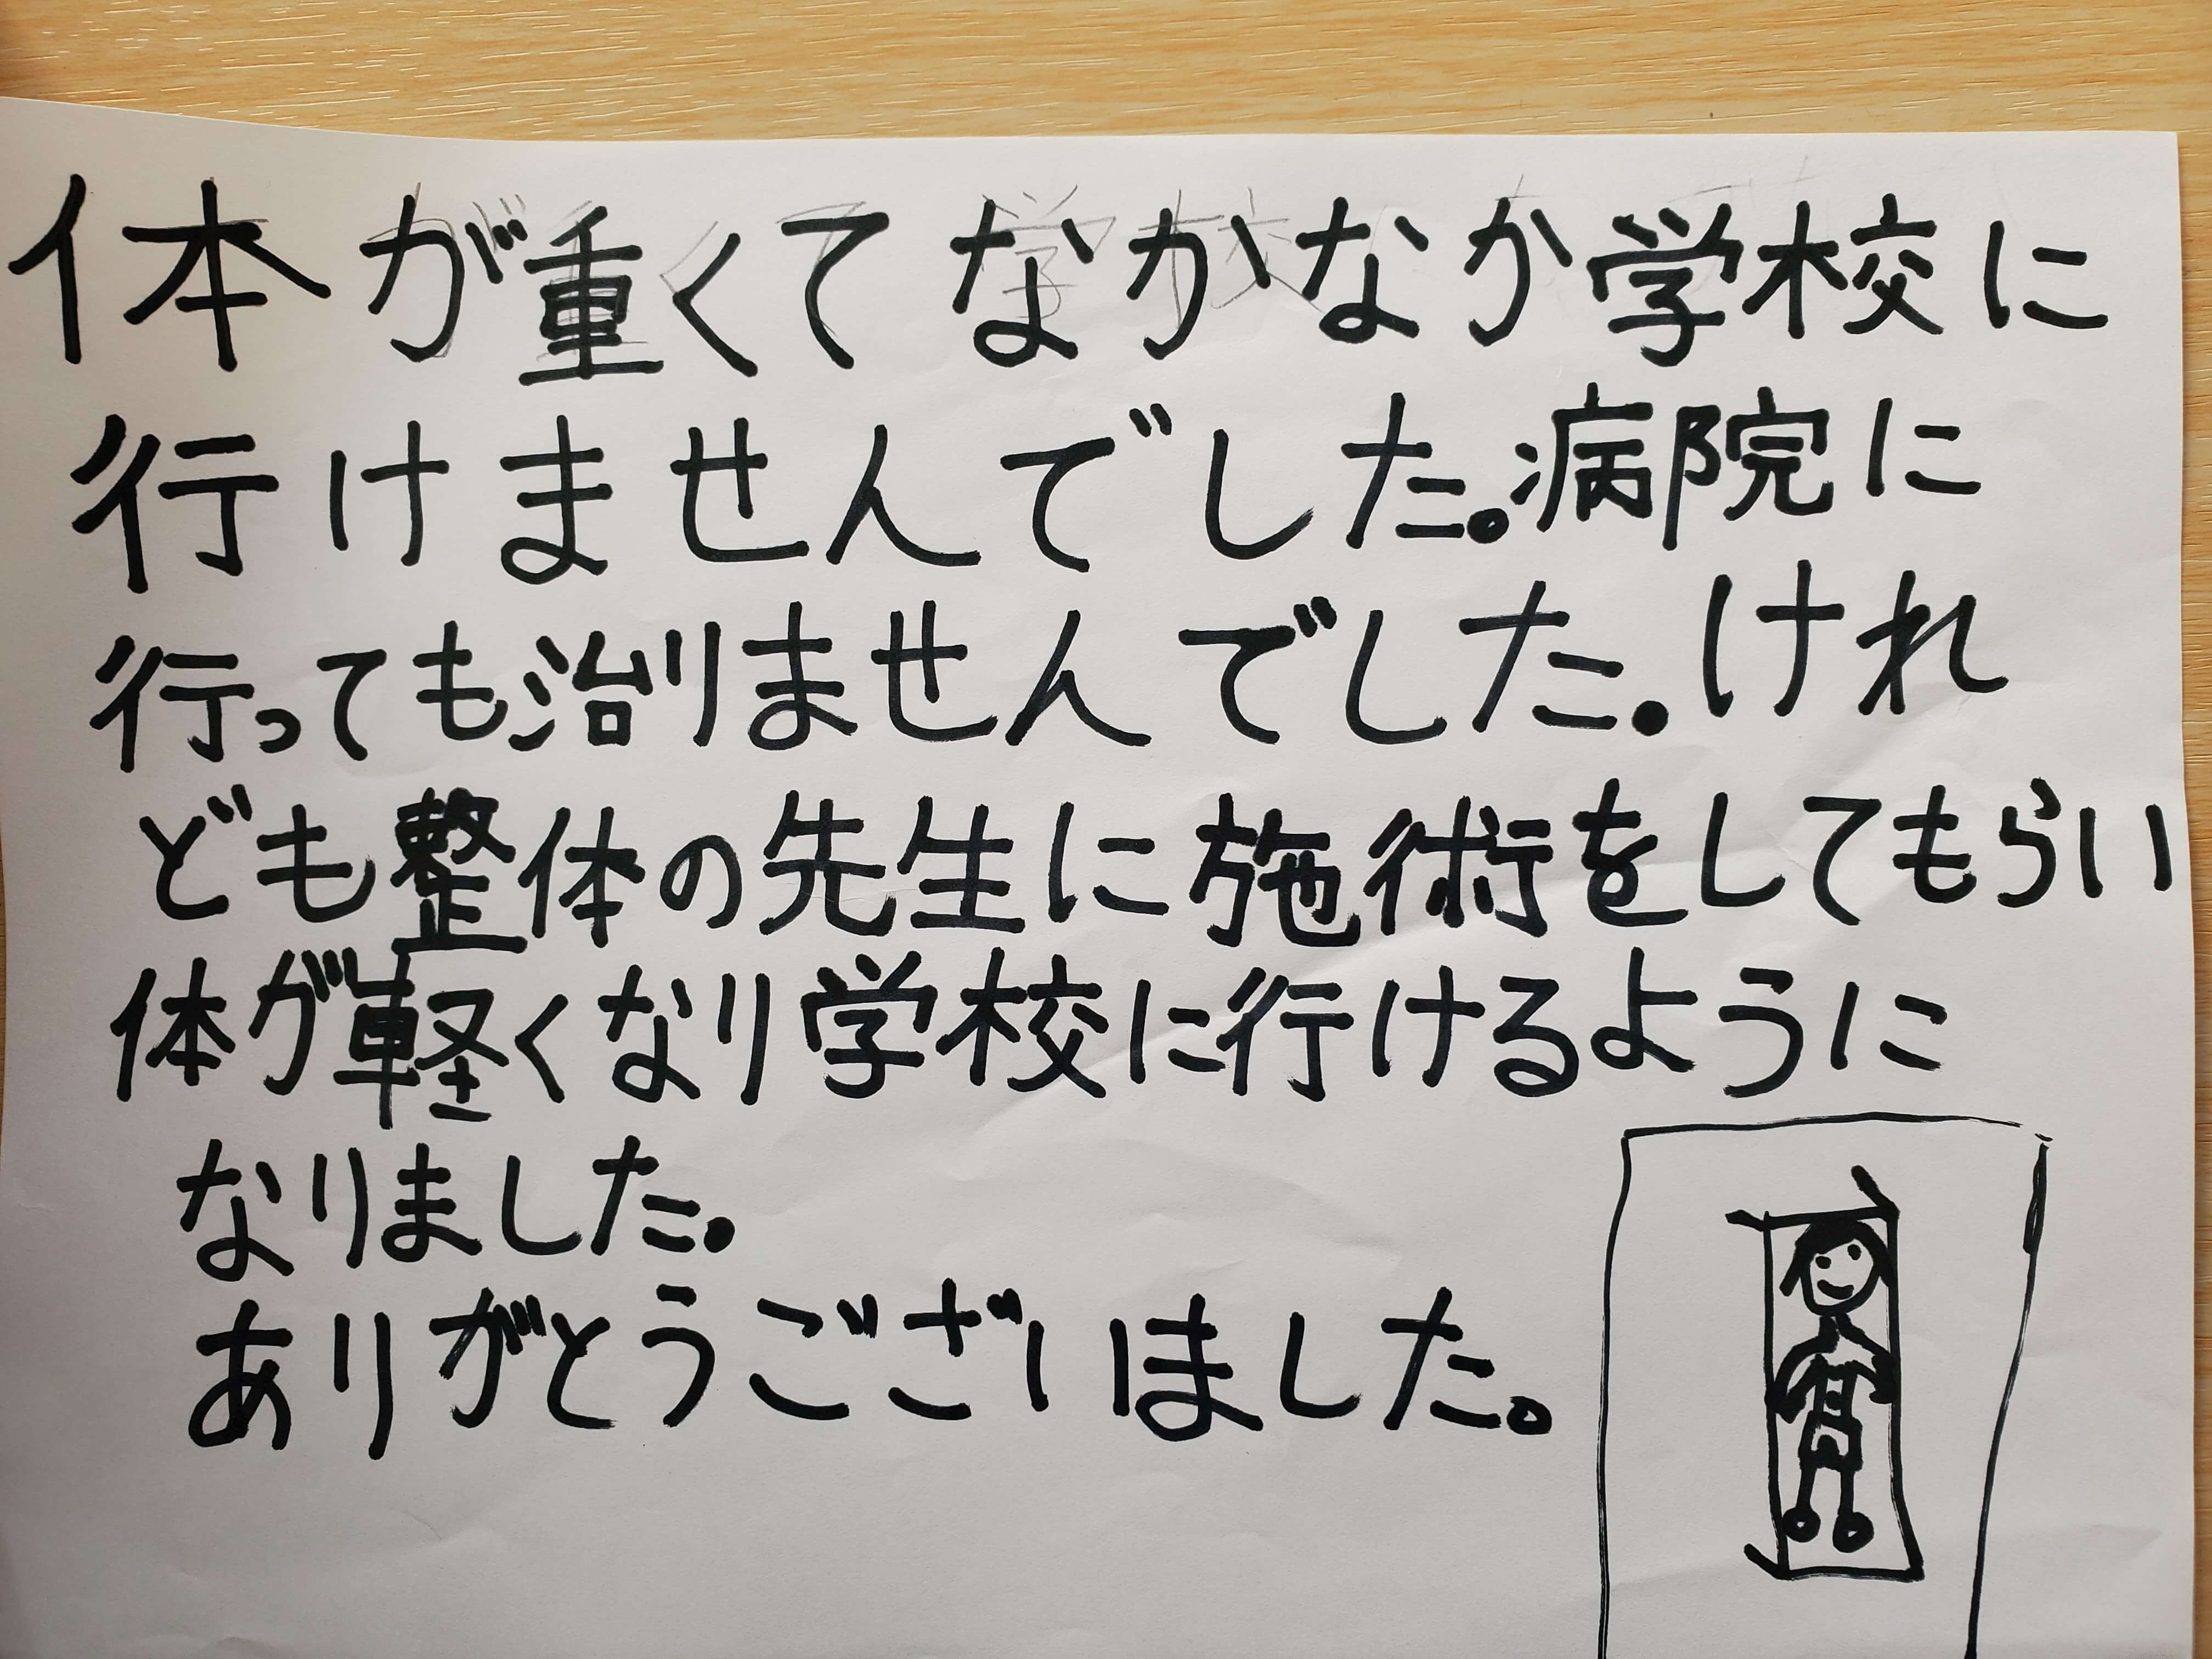 体が重くてなかなか学校に
行けませんでした。病院に
行っても治りませんでした。けれ
ども整体の先生に施術をしてもらい
体が軽くなり学校に行けるように
なりました。
ありがとうございました。